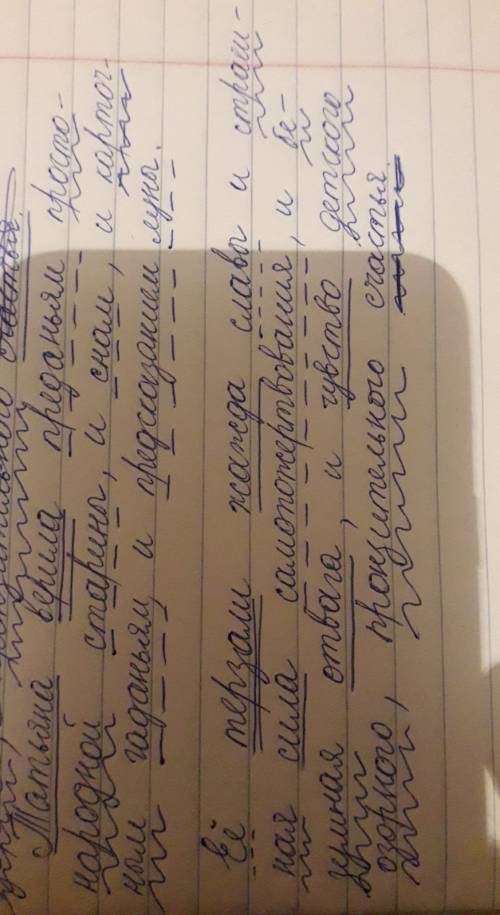 Татьяна верила преданьям просто-
народной старины, и снам, и карточ-
ным гаданьям, и предсказанием луны.
Её терзали жажда славы и страш-
ная сила самопожертвования, и бе-
зумная отвага, и чувство детского
озорного, пронзительного счастья.